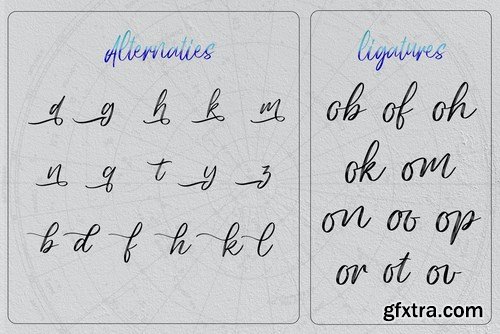 Alternaties
d g h k m
n q t y z
b d f h k l
ligatures
ob of oh
ok om
on oo op
or ot ov
gfxtra.com